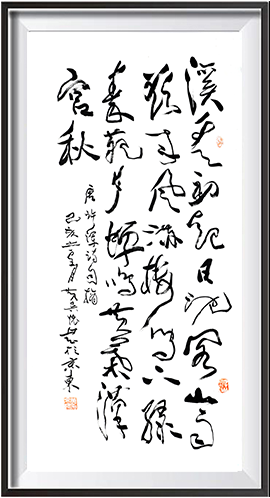 溪云初起日沉阁山雨
欲来风满楼鸟下绿
秦苑夕蝉鸣黄叶汉
宫秋
唐许浑诗句摘
己亥月於京東